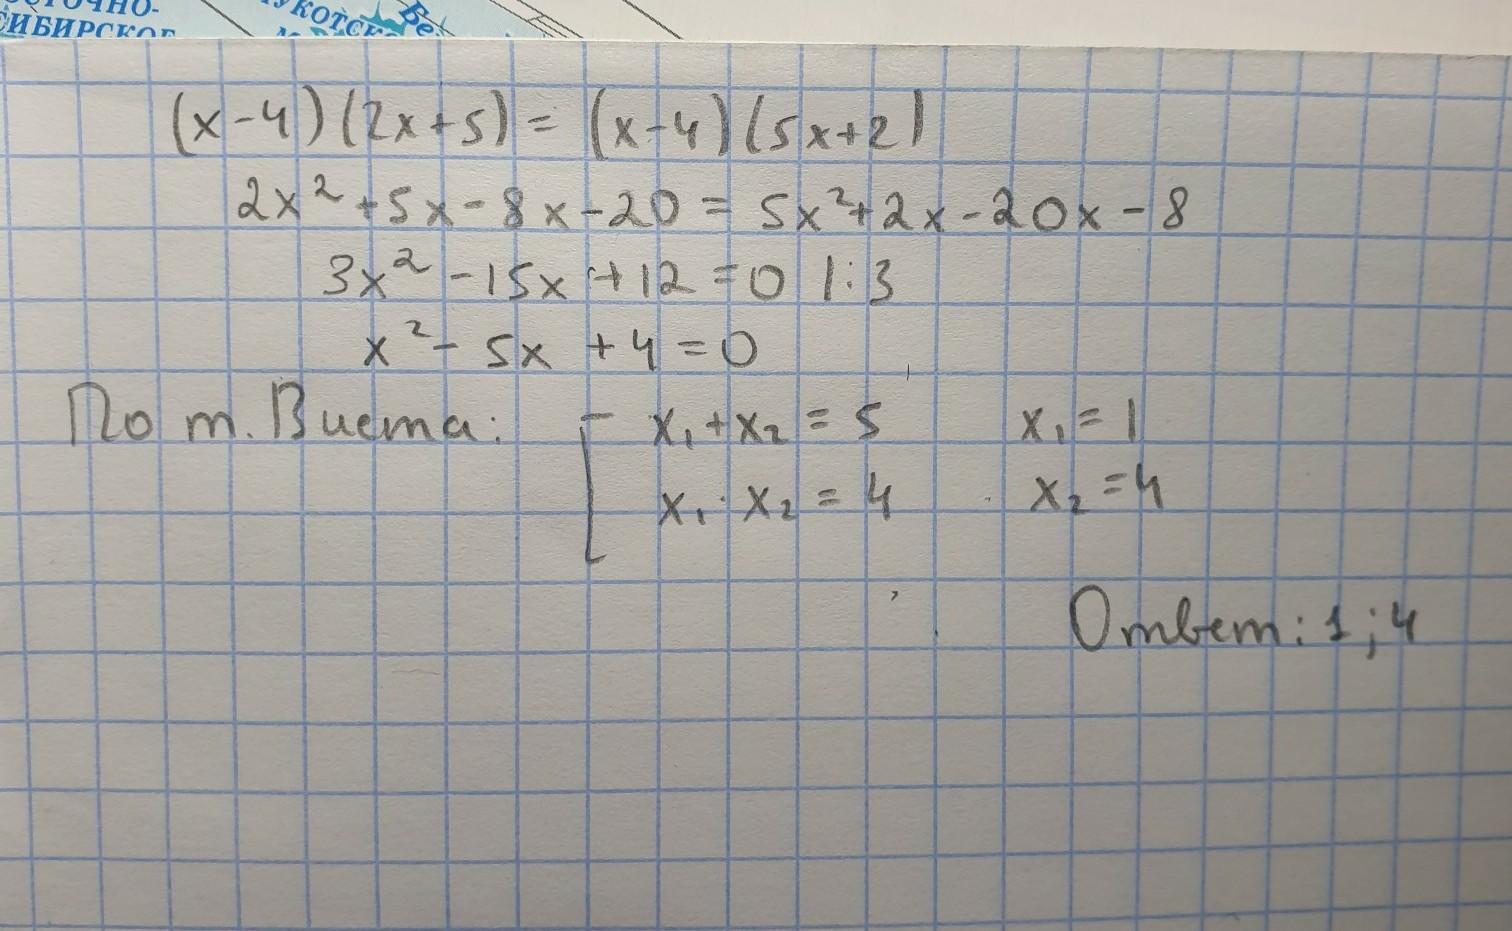 СИБИРСКОЕ
(x-4)(2x+5) = (x-4)(5x+2)
2x² + 5x - 8x - 20 = 5x² + 2x - 20x - 8
3x² - 15x + 12 = 0 |:3
x² - 5x + 4 = 0
По т. Виета: [ x₁ + x₂ = 5 x₁ = 1
x₁ · x₂ = 4 x₂ = 4
Ответ: 1; 4